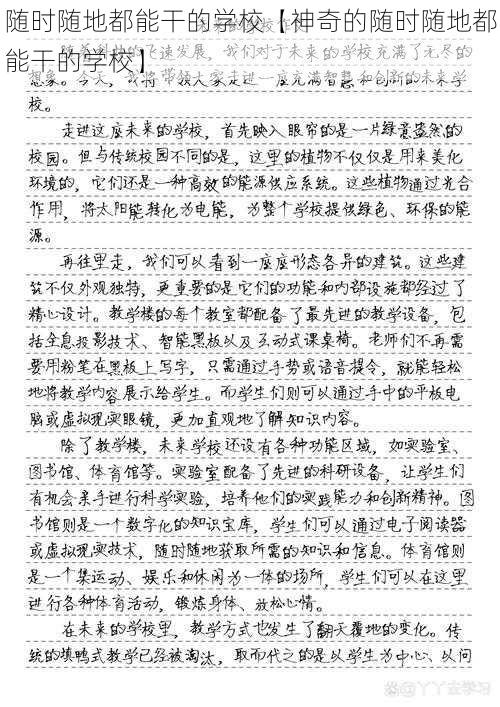 随时随地都能干的学校【神奇的随时随地都
能干的学校】
随着科技的飞速发展，我们对于未来的学校充满了无尽的
想象。今天，我将带领大家走进一座充满智慧和创新的未来学
校。
走进这座未来的学校，首先映入眼帘的是一片绿意盎然的
校园。但与传统校园不同的是，这里的植物不仅仅是用来美化
环境的，它们还是一种高效的能源供应系统。这些植物通过光合
作用，将太阳能转化为电能，为整个学校提供绿色、环保的能
源。
再往里走，我们可以看到一座座形态各异的建筑。这些建
筑不仅外观独特，更重要的是它们的功能和内部设施都经过了
精心设计。教学楼的每个教室都配备了最先进的教学设备，包
括全息投影技术、智能黑板以及互动式课桌椅。老师们不再需
要用粉笔在黑板上写字，只需通过手势或语音指令，就能轻松
地将教学内容展示给学生。而学生们则可以通过手中的平板电
脑或虚拟现实眼镜，更加直观地了解知识内容。
除了教学楼，未来学校还设有各种功能区域，如实验室、
图书馆、体育馆等。实验室配备了先进的科研设备，让学生们
有机会亲手进行科学实验，培养他们的实践能力和创新精神。图
书馆则是一个数字化的知识宝库，学生们可以通过电子阅读器
或虚拟现实技术，随时随地获取所需的知识和信息。体育馆则
是一个集运动、娱乐和休闲为一体的场所，学生们可以在这里
进行各种体育活动，锻炼身体、放松心情。
在未来的学校里，教学方式也发生了翻天覆地的变化。传
统的填鸭式教学已经被淘汰，取而代之的是以学生为中心、以问
@丫丫去学习